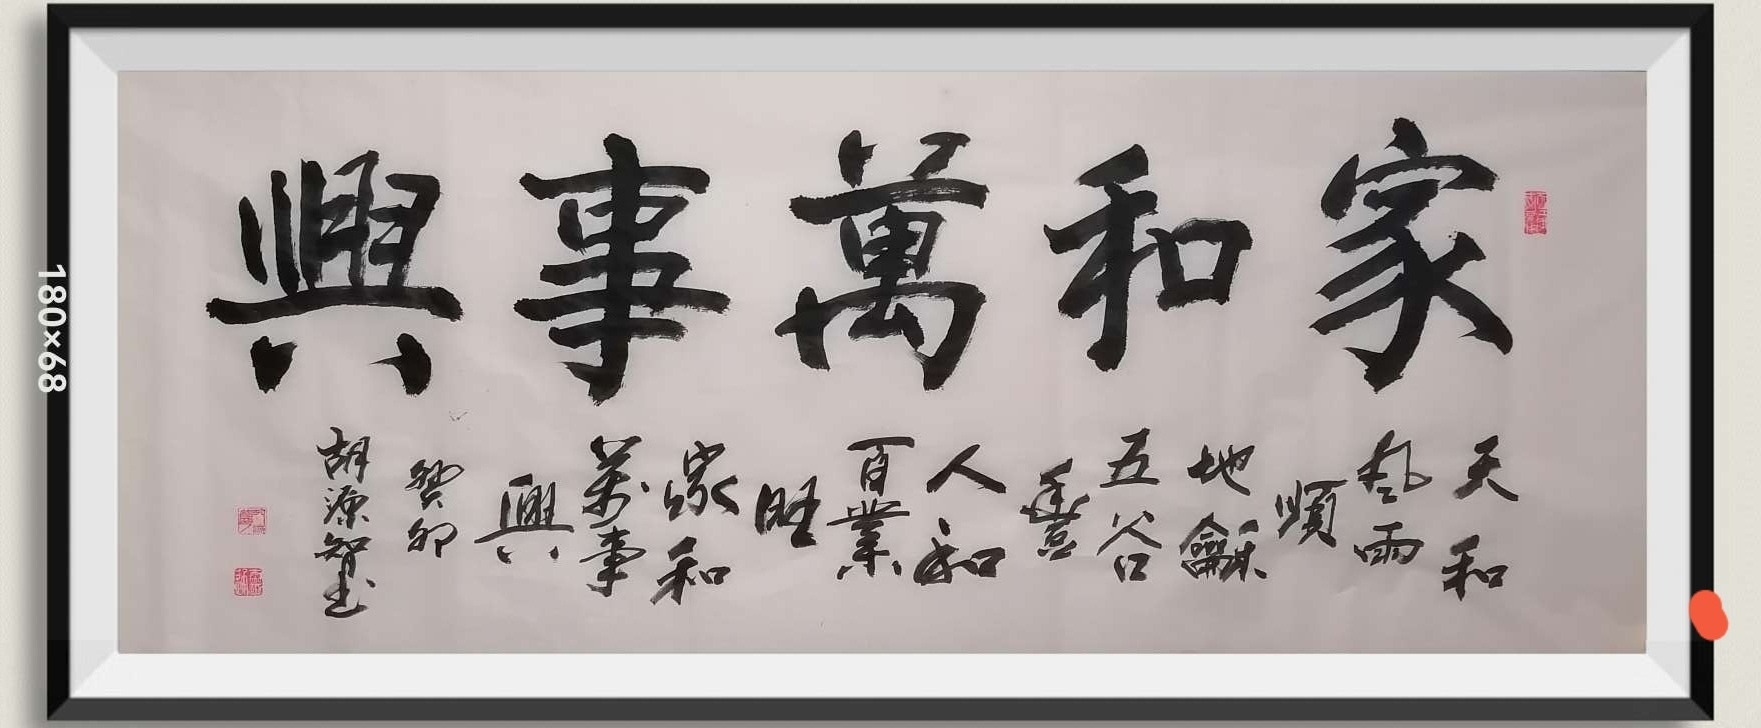 家和萬事興
天和
風雨
順
地龢
五谷
豐
人和
百業
旺
家和
萬事
興
癸卯
胡源智書
180×68